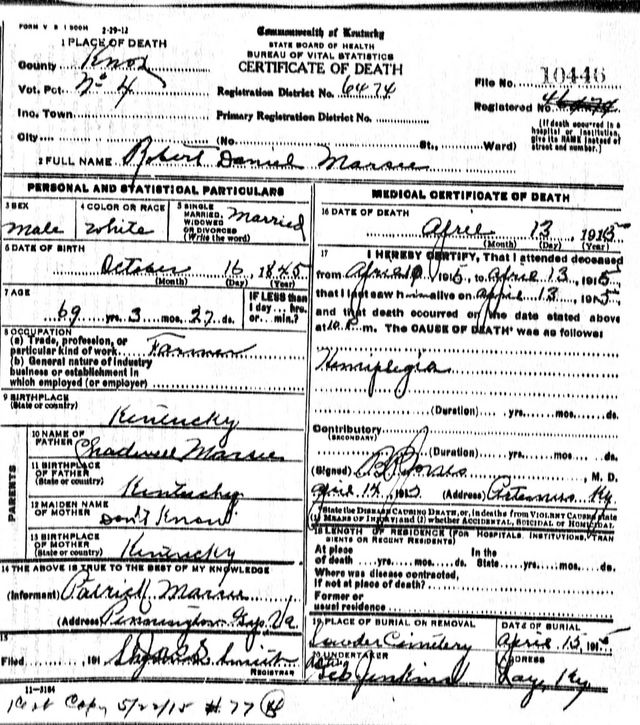 FORM V S 1 500M 2-29-12
Commonwealth of Kentucky
STATE BOARD OF HEALTH
BUREAU OF VITAL STATISTICS
CERTIFICATE OF DEATH
1 PLACE OF DEATH
County Knox
Vot. Pct. No 4
Registration District No. 6474
File No. 10446
Registered No.
Inc. Town
Primary Registration District No.
(If death occurred in a hospital or institution, give its NAME instead of street and number.)
City (No. St., Ward)
2 FULL NAME Robert Daniel Marsee
PERSONAL AND STATISTICAL PARTICULARS
3 SEX
Male
4 COLOR OR RACE
White
5 SINGLE MARRIED, WIDOWED OR DIVORCED (Write the word)
Married
6 DATE OF BIRTH
October 16, 1845
(Month) (Day) (Year)
7 AGE
69 yrs. 3 mos. 27 ds.
IF LESS than 1 day ... hrs. or ... min.?
8 OCCUPATION
(a) Trade, profession, or particular kind of work Farmer
(b) General nature of industry business or establishment in which employed (or employer)
9 BIRTHPLACE
(State or country)
Kentucky
PARENTS
10 NAME OF FATHER Chadwell Marsee
11 BIRTHPLACE OF FATHER
(State or country)
Kentucky
12 MAIDEN NAME OF MOTHER Don't Know
13 BIRTHPLACE OF MOTHER
(State or country)
Kentucky
14 THE ABOVE IS TRUE TO THE BEST OF MY KNOWLEDGE
(Informant) Patrick Marsee
(Address) Pennington Gap, Va
15
Filed 191 Smith
REGISTRAR
11-3184
MEDICAL CERTIFICATE OF DEATH
16 DATE OF DEATH
April 13, 1915
(Month) (Day) (Year)
17 I HEREBY CERTIFY, That I attended deceased
from April 10 1915, to April 13, 1915
that I last saw him alive on April 13, 1915
and that death occurred on the date stated above
at 10 P. m. The CAUSE OF DEATH* was as follows:
Hemiplegia
(Duration) yrs. mos. ds.
Contributory
(SECONDARY)
(Duration) yrs. mos. ds.
(Signed) M. D.
April 14, 1915 (Address) Artemus Ky.
*State the DISEASE CAUSING DEATH, or, in deaths from VIOLENT CAUSES state
(1) MEANS OF INJURY; and (2) whether ACCIDENTAL, SUICIDAL OR HOMICIDAL
18 LENGTH OF RESIDENCE (FOR HOSPITALS, INSTITUTIONS, TRANSIENTS OR RECENT RESIDENTS)
At place of death yrs. mos. ds.
In the State yrs. mos. ds.
Where was disease contracted,
If not at place of death?
Former or usual residence
19 PLACE OF BURIAL OR REMOVAL
Lowder Cemetery
DATE OF BURIAL
April 15, 1915
20 UNDERTAKER
Jenkins
ADDRESS
Gray, Ky
Copy 5/22/15 #77